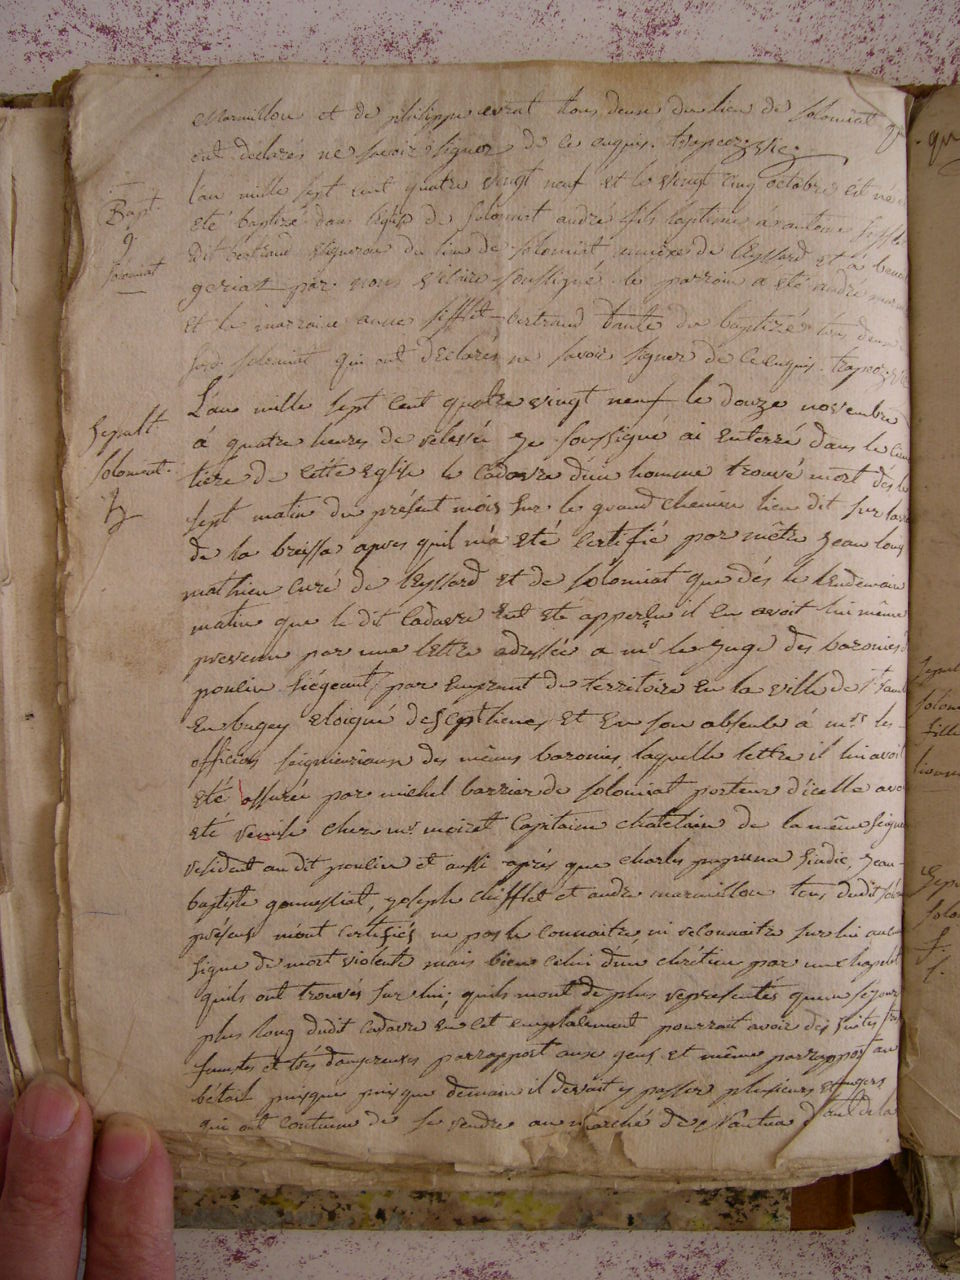 Marmillon et de philippe evrat tous deux du lieu de solomiat qui
ont declarés ne savoir signer de ce enquis. trapoz. vic.
Bapt.
9
solomiat
l'an mille sept cent quatre vingt neuf et le vingt cinq octobre est né
eté baptizé dans l'église de solomiat andré fils légitime à antoine
dit bertrand vigneron du lieu de solomiat annexe de leyssard et à
geriat par nous vicaire soussigné le parrain a eté andré
et la marraine anne sifflet-bertrand tante du baptizé tous deux
solomiat qui ont declarés ne savoir signer de ce enquis. trapoz. vic
Sepult
solomiat.
L'an mille sept cent quatre vingt neuf le douze novembre
à quatre heures de relevée je soussigné ai enterré dans le
tiere de cette eglise le cadavre d'un homme trouvé mort dès le
sept matin du présent mois sur le grand chemin lieu dit sur
de la breissa apres quil m'a eté certifié par mêtre jean
mathieu curé de leyssard et de solomiat que dés le lendemain
matin que le dit cadavre eut eté apperçu il en avoit lui même
prevenu par une lettre adressée a mr le juge des baronies
poncin siégeant par emprunt de territoire en la ville de st
en bugey eloigné de sept lieues et en son absence à mrs les
officiers seigneuriaux des mêmes baronies laquelle lettre il lui avoit
eté assurée par michel barrier de solomiat porteur d'icelle
eté remise chez mr moiret capitaine chatelain de la même
resident au dit poncin et aussi après que charles sindic, jean-
baptiste gonnessiat, joseph chifflet et andré marmillon tous dudit
présens m'ont certifiés ne pas le connaitre, ni reconnaitre sur lui
signe de mort violente mais bien celui d'un chrétien par un chapelet
quils ont trouvés sur lui. quils m'ont de plus representés quun séjour
plus long dudit cadavre en cet emplacement pourrait avoir des suites
funestes et trés dangereuses parrapport aux gens et même parrapport au
bétail puisque puisque demain il devait y passer plusieurs etrangers
qui ont coutume de se rendre au marché de Nantua